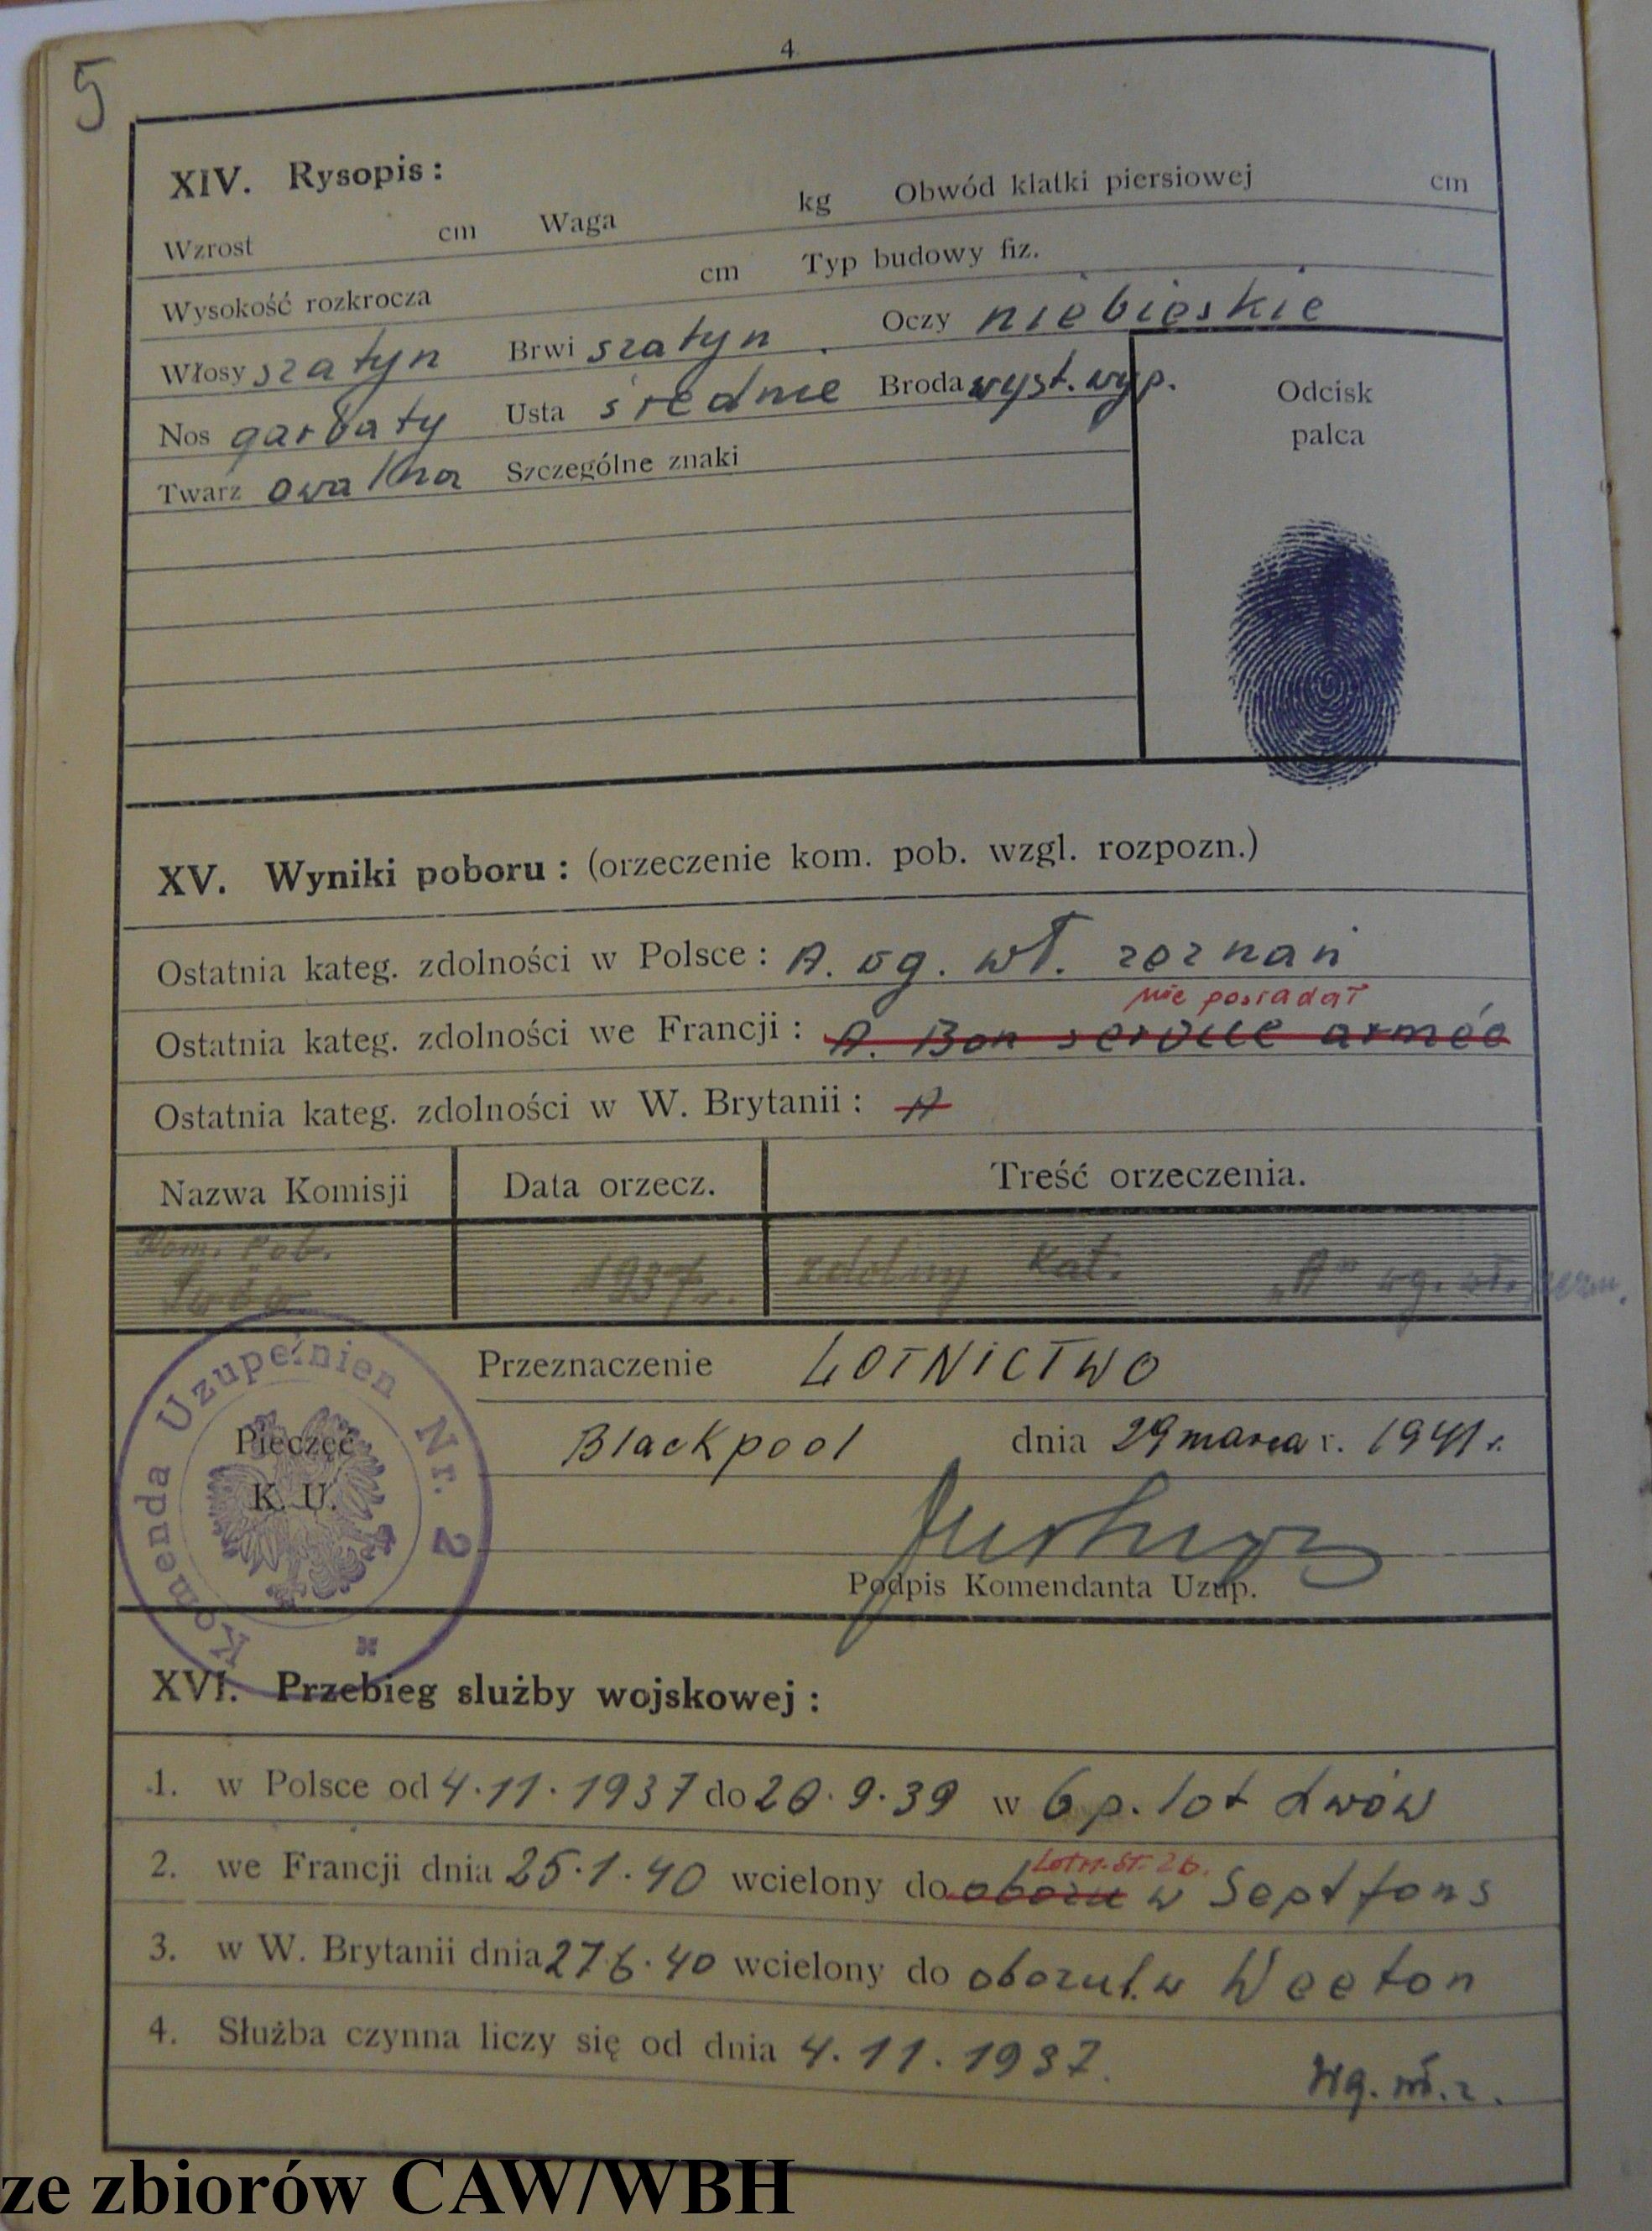 4
5
XIV. Rysopis :
Wzrost cm Waga kg Obwód klatki piersiowej cm
Wysokość rozkrocza cm Typ budowy fiz.
Włosy szatyn Brwi szatyn. Oczy niebieskie
Nos garbaty Usta średnie Broda wyst. wyp.
Twarz owalna Szczególne znaki
Odcisk
palca
XV. Wyniki poboru : (orzeczenie kom. pob. wzgl. rozpozn.)
Ostatnia kateg. zdolności w Polsce : A. wg. wł. zeznań
nie posiadał
Ostatnia kateg. zdolności we Francji : A. Bon service armée
Ostatnia kateg. zdolności w W. Brytanii : A
Nazwa Komisji Data orzecz. Treść orzeczenia.
Kom. Pob.
Lwów 1937 r. zdolny kat. „A" wg. wł. zezn.
Przeznaczenie LOTNICTWO
Blackpool dnia 29 marca r. 1941 r.
Pieczęć
K. U.
Komenda Uzupełnień Nr. 2
Podpis Komendanta Uzup.
XVI. Przebieg służby wojskowej :
1. w Polsce od 4.11.1937 do 20.9.39 w 6 p. lot Lwów
Lotn. St. Zb.
2. we Francji dnia 25.1.40 wcielony do obozu w Septfons
3. w W. Brytanii dnia 27.6.40 wcielony do obozu l. w Weeton
4. Służba czynna liczy się od dnia 4.11.1937.
Wg. wł. z.
ze zbiorów CAW/WBH